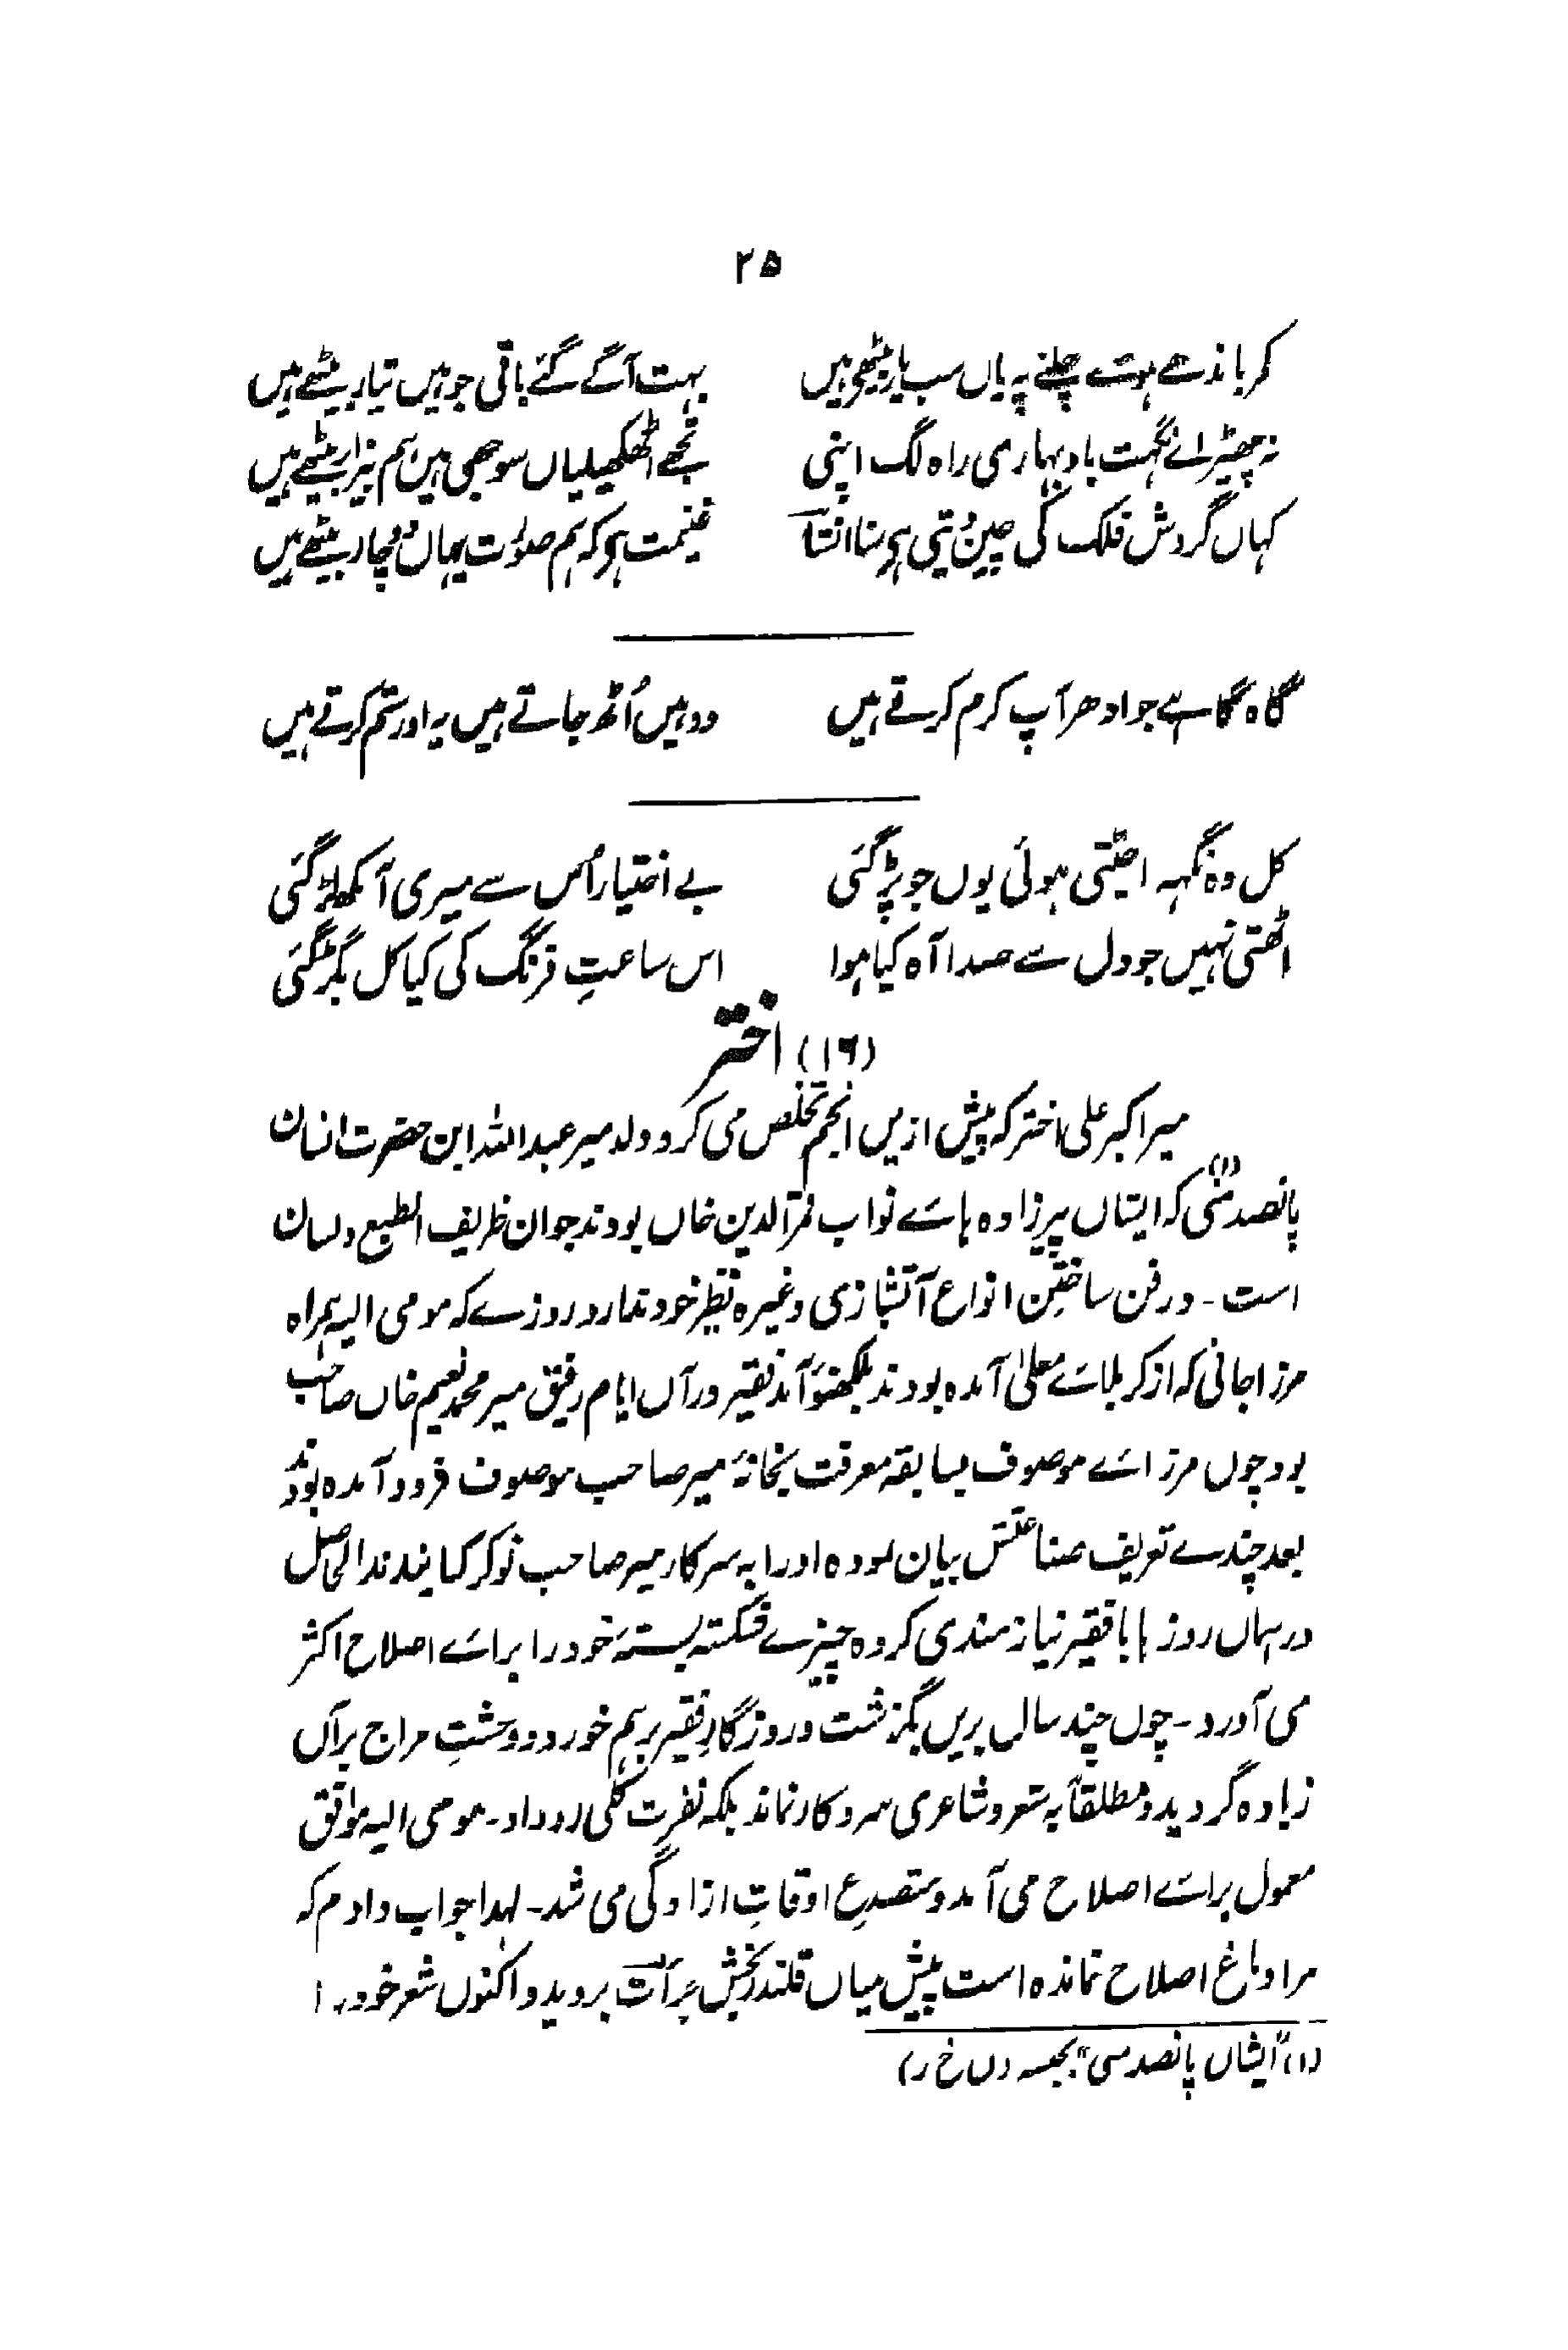 ۲۵
کمر باندھے ہوئے چلنے پہ یاں سب یار بیٹھے ہیں بہت آگے گئے باقی جو ہیں تیار بیٹھے ہیں
نہ چھیڑ اے نگہت باد بہاری راہ لگ اپنی تجھے اٹھکھیلیاں سوجھی ہیں ہم بیزار بیٹھے ہیں
کہاں گردش فلک کی چین دیتی ہی سنا انشا غنیمت ہی کہ ہم صورت یہاں دو چار بیٹھے ہیں
گاہ گاہے جو ادھر آپ کرم کرتے ہیں ووہیں اُٹھ جاتے ہیں یہ اور ستم کرتے ہیں
کل وہ نگہہ اچٹتی ہوئی یوں جو پڑ گئی بے اختیار اُس سے میری آنکھ لڑ گئی
اٹھتی نہیں جو دل سے صدا آہ کیا ہوا اس ساعتِ فرنگ کی کیا کل بگڑ گئی
(۱۶) اختر
میر اکبر علی اختر کہ پیش ازیں انجم تخلص می کرد ولد میر عبداللہ ابن حضرت انسان
پانصد منی(۱) کہ ایشاں پیرزادہ ہائے نواب قمر الدین خاں بودند جوان ظریف الطبع و لسان
است ۔ در فن ساختنِ انواع آتشبازی وغیرہ نظیر خود ندارد روزے کہ مومی الیہ ہمراہ
مرزا جانی کہ از کربلائے معلیٰ آمدہ بودند بلکھنؤ آمد فقیر در آں ایام رفیق میر محمد نعیم خاں صاحب
بود چوں مرزائے موصوف بسابقہ معرفت بخانۂ میر صاحب موصوف فرود آمدہ بودند
بعد چندے تعریف صناعتش بیان نمودہ او را بہ سرکار میر صاحب نوکر کنایندند الحاصل
در ہماں روز ہا با فقیر نیازمندی کردہ چیزے شکستہ بستۂ خود را برائے اصلاح اکثر
می آورد ۔ چوں چند سال بریں بگزشت و روزگارِ فقیر برہم خورد و وحشتِ مزاج برآں
زیادہ گردید و مطلقاً بہ شعر و شاعری سروکار نماند بلکہ نفرت کلی رو داد ۔ مومی الیہ موافق
معمول برائے اصلاح می آمد و متصدعِ اوقاتِ ازادگی می شد ۔ لہذا جواب دادم کہ
مرا دماغ اصلاح نماندہ است پیش میاں قلندر بخش جرأت بروید و اکنوں شعر خود را
(۱) "ایشاں پانصد منی" بجنسہ (ن خ ر)